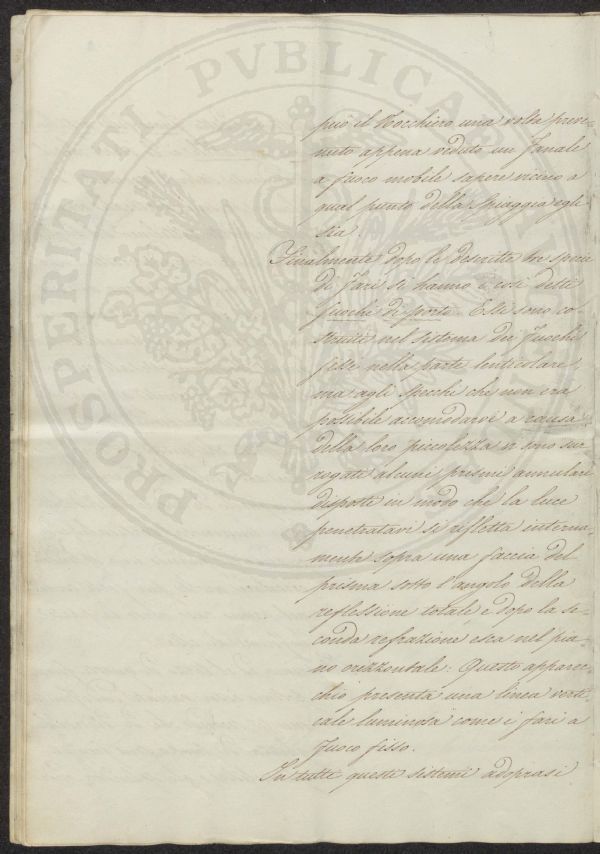 può il Nocchiero una volta preve-
nuto appena veduto un Fanale
a fuoco mobile sapere vicino a
qual punto della Spiaggia egli
sia.
Finalmente dopo le descritte tre specie
di Fari si hanno i così detti
fuochi di porto. Essi sono co-
struiti nel sistema dei Fuochi
fissi nella parte lenticolare,
ma agli specchi che non era
possibile accomodarvi a causa
della loro piccolezza vi sono sur
rogati alcuni prismi annulari
disposti in modo che la luce
penetratavi si rifletta interna-
mente sopra una faccia del
prisma sotto l'angolo della
reflessione totale, e dopo la se-
conda refrazione esca nel pia-
no orizzontale. Questo apparec-
chio presenta una linea verti-
cale luminosa come i fari a
fuoco fisso.
In tutti questi sistemi adoprasi
PROSPERITATI PVBLICAE